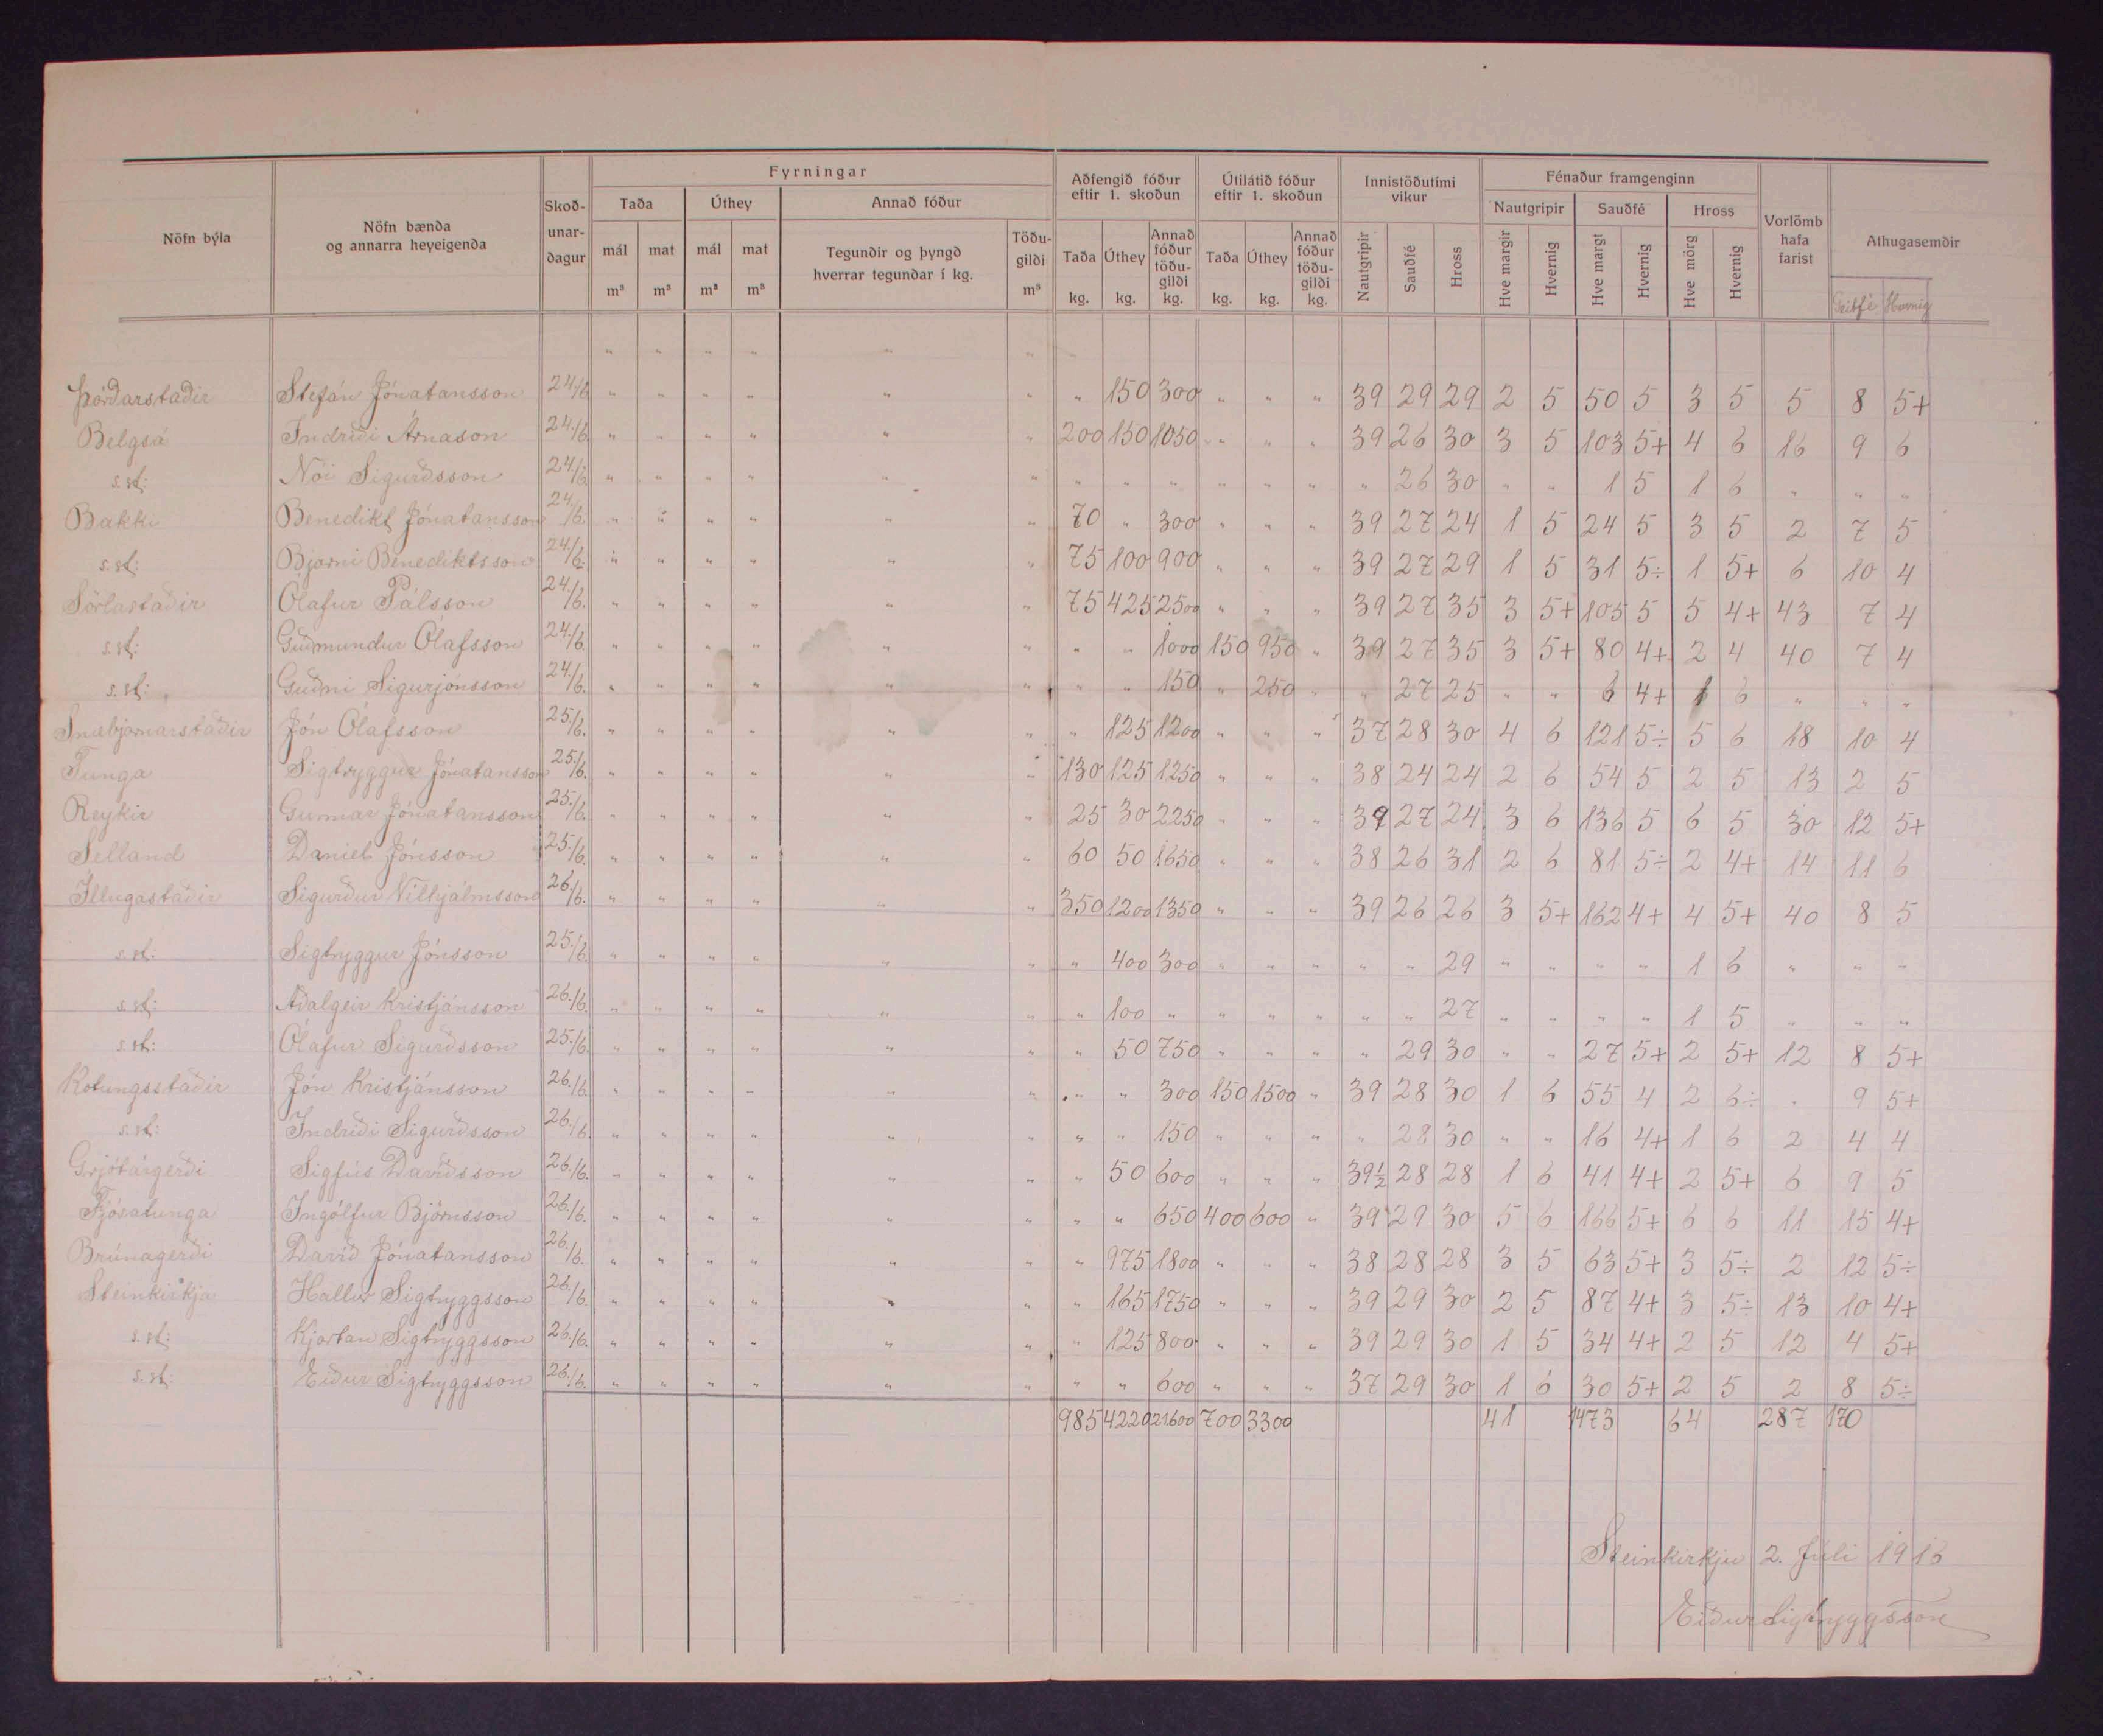 Fyrningar
Aðfengið fóður eftir 1. skoðun
Útilátið fóður eftir 1. skoðun
Innistöðutími vikur
Fénaður framgenginn
Nöfn býla
Nöfn bænða og annarra heyeigenða
Skoð-unar-ðagur
Taða
Úthey
Annað fóður
Nautgripir
Sauðfé
Hross
Vorlömb hafa farist
Athugasemðir
mál m³ mat m³ mál m³ mat m³
Tegunðir og þyngð hverrar tegunðar í kg.
Töðu-gilði m³
Taða kg. Úthey kg. Annað fóður töðu-gilði kg.
Taða kg. Úthey kg. Annað fóður töðu-gilði kg.
Nautgripir Sauðfé Hross
Hve margir Hvernig Hve margt Hvernig Hve mörg Hvernig
Geitfé Hvernig
" " " " " "
Þórðarstaðir Stefán Jónatansson 24./6 " " " " " " " 150 300 " " " 39 29 29 2 5 50 5 3 5 5 8 5+
Belgsá Indriði Árnason 24./6 " " " " " " 200 150 1050 " " " 39 26 30 3 5 103 5+ 4 6 16 9 6
s.st: Nói Sigurðsson 24./6 " " " " " " " " " " " " " 26 30 " " 1 5 1 6 " " "
Bakki Benedikt Jónatansson 24./6. " " " " " " 70 " 300 " " " 39 27 24 1 5 24 5 3 5 2 7 5
s.st: Bjarni Benediktsson 24./6. " " " " " " 75 100 900 " " " 39 27 29 1 5 31 5÷ 1 5+ 6 10 4
Sörlastaðir Ólafur Pálsson 24./6. " " " " " " 75 425 2500 " " " 39 27 35 3 5+ 105 5 5 4+ 43 7 4
s.st: Guðmundur Ólafsson 24./6. " " " " " " " " 1000 150 950 " 39 27 35 3 5+ 80 4+ 2 4 40 7 4
s.st: Guðni Sigurjónsson 24./6. " " " " " " " " 150 " 250 " " 27 25 " " 6 4+ 1 6 " " "
Snæbjarnarstaðir Jón Ólafsson 25./6. " " " " " " " 125 1200 " " " 37 28 30 4 6 121 5÷ 5 6 18 10 4
Tunga Sigtryggur Jónatansson 25./6. " " " " " " 130 125 1250 " " " 38 24 24 2 6 54 5 2 5 13 2 5
Reykir Gunnar Jónatansson 25./6. " " " " " " 25 30 2250 " " " 39 27 24 3 6 136 5 6 5 30 12 5+
Selland Daníel Jónsson 25./6. " " " " " " 60 50 1650 " " " 38 26 31 2 6 81 5÷ 2 4+ 14 11 6
Illugastaðir Sigurður Vilhjálmsson 26./6. " " " " " " 350 1200 1350 " " " 39 26 26 3 5+ 162 4+ 4 5+ 40 8 5
s.st: Sigtryggur Jónsson 25./6. " " " " " " " 400 300 " " " " " 29 " " " " 1 6 " " "
s.st: Aðalgeir Kristjánsson 26./6. " " " " " " " 100 " " " " " " 27 " " " " 1 5 " " "
s.st: Ólafur Sigurðsson 25./6. " " " " " " " 50 750 " " " " 29 30 " " 27 5+ 2 5+ 12 8 5+
Kotungsstaðir Jón Kristjánsson 26./6. " " " " " " " " 300 150 1500 " 39 28 30 1 6 55 4 2 6÷ " 9 5+
s.st: Indriði Sigurðsson 26./6. " " " " " " " " 150 " " " " 28 30 " " 16 4+ 1 6 2 4 4
Grjótárgerði Sigfús Davíðsson 26./6. " " " " " " " 50 600 " " " 39½ 28 28 1 6 41 4+ 2 5+ 6 9 5
Fjósatunga Ingólfur Björnsson 26./6. " " " " " " " " 650 400 600 " 39 29 30 5 6 166 5+ 6 6 11 15 4+
Brúnagerði Davíð Jónatansson 26./6. " " " " " " " 975 1800 " " " 38 28 28 3 5 63 5+ 3 5÷ 2 12 5÷
Steinkirkja Hallur Sigtryggsson 26./6. " " " " " " " 165 1750 " " " 39 29 30 2 5 87 4+ 3 5÷ 13 10 4+
s.st: Kjartan Sigtryggsson 26./6. " " " " " " " 125 800 " " " 39 29 30 1 5 34 4+ 2 5 12 4 5+
s.st: Eiður Sigtryggsson 26./6. " " " " " " " " 600 " " " 37 29 30 1 6 30 5+ 2 5 2 8 5÷
985 4220 21600 700 3300 41 1473 64 287 170
Steinkirkju 2. Júlí 1916
Eiður Sigtryggsson